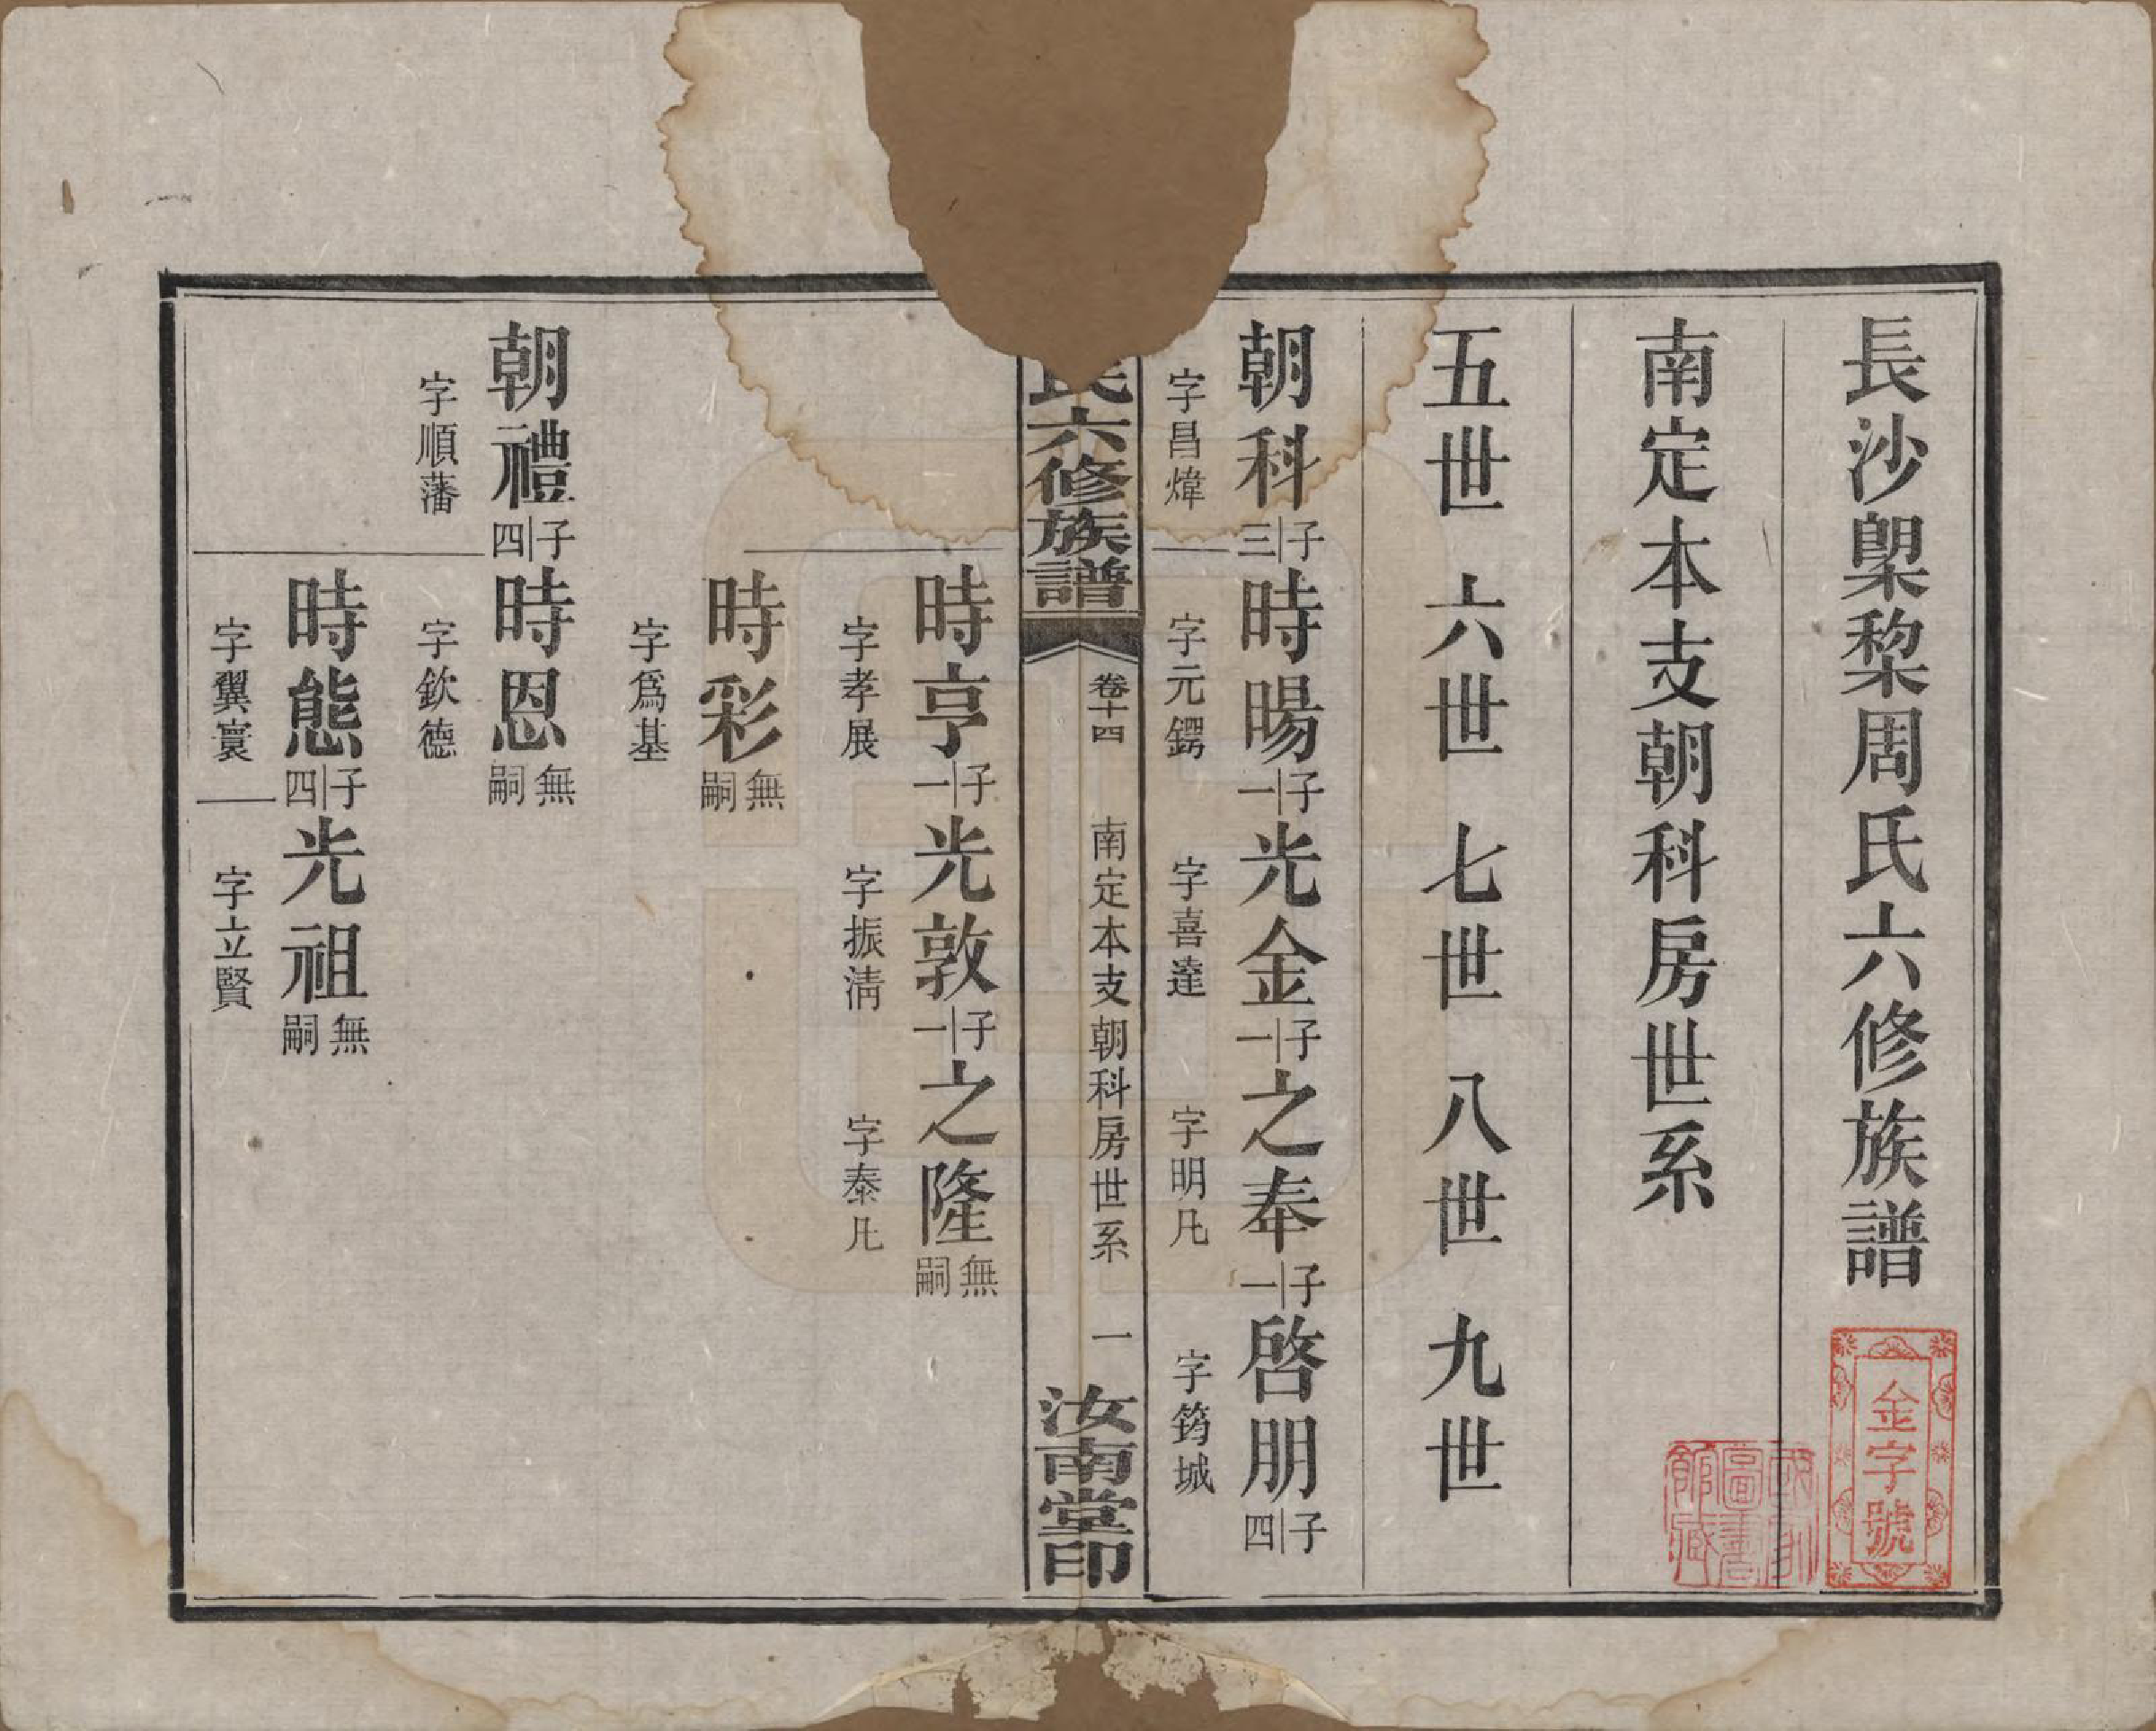 長沙㮚棃周氏六修族譜
金字號
國立圖書館藏
南定本支朝科房世系
五世 六世 七世 八世 九世
朝科 子三 時暘 子一 光金 子一 之奉 子一 啓朋 子四
字昌煒 字元鍔 字喜逹 字明凡 字筠城
氏六修族譜 卷十四 南定本支朝科房世系 一 汝南堂印
時亨 子一 光敦 子一 之隆 無嗣
字孝展 字振淸 字泰凡
時彩 無嗣
字爲基
朝禮 子四 時恩 無嗣
字順藩 字欽德
時態 子四 光祖 無嗣
字翼寰 字立賢